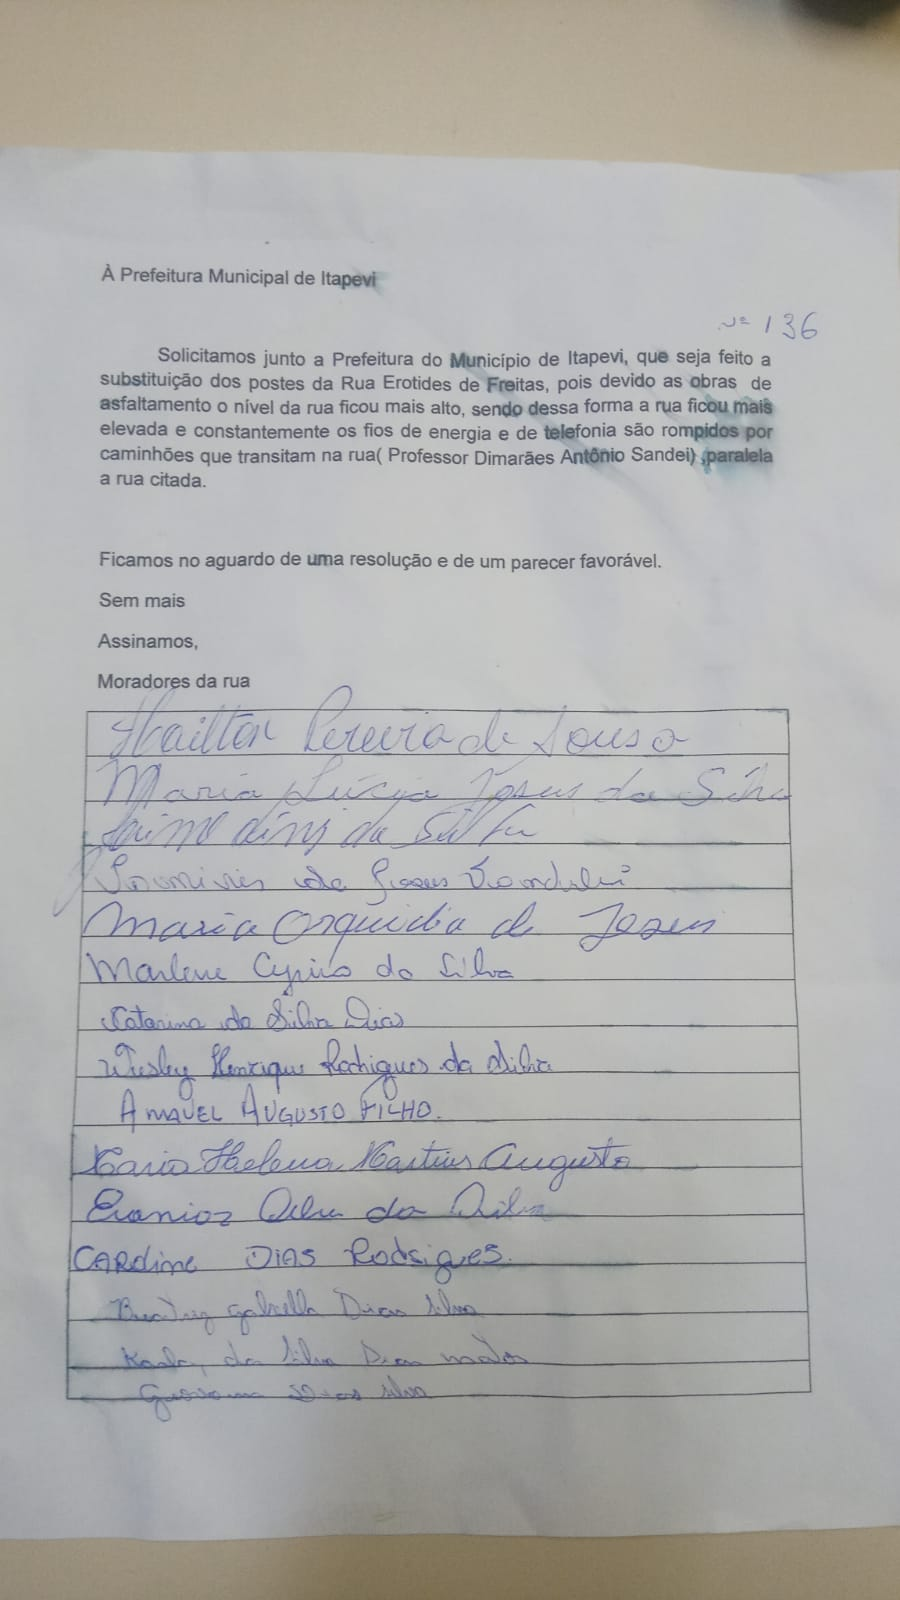 À Prefeitura Municipal de Itapevi
Nº 136
Solicitamos junto a Prefeitura do Município de Itapevi, que seja feito a
substituição dos postes da Rua Erotides de Freitas, pois devido as obras de
asfaltamento o nível da rua ficou mais alto, sendo dessa forma a rua ficou mais
elevada e constantemente os fios de energia e de telefonia são rompidos por
caminhões que transitam na rua( Professor Dimarães Antônio Sandei) ,paralela
a rua citada.
Ficamos no aguardo de uma resolução e de um parecer favorável.
Sem mais
Assinamos,
Moradores da rua
Pereira de Sousa
Maria Lúcia Jesus da Silva
da Silva
de Jesus
Maria Orquidia de Jesus
Marlene do Silva
Catarina da Silva Dias
Wesley Henrique Rodrigues da Silva
AMAUEL AUGUSTO FILHO.
Maria Helena Martins Augusto
da Silva
CAROline DIAS Rodrigues.
Beatriz Gabriella Dias Silva
da Silva Dias
Giovanna Dias Silva